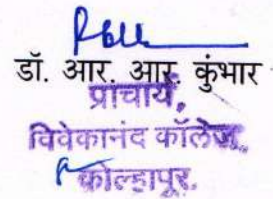 डॉ. आर. आर. कुंभार
प्राचार्य,
विवेकानंद कॉलेज,
कोल्हापूर.